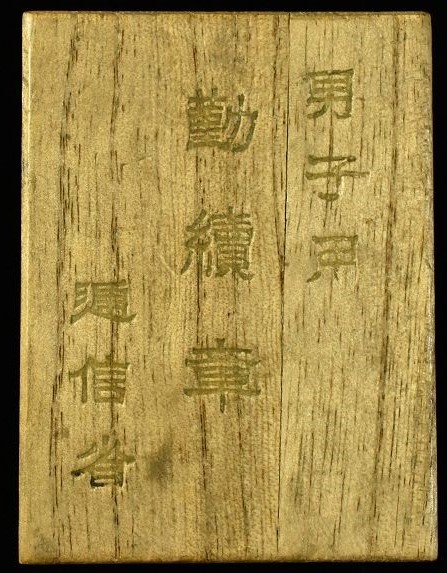 男子用
勤續章
逓信省